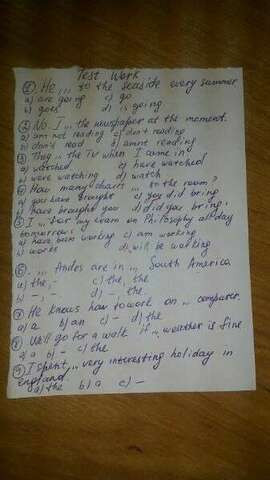 Test Work
① He ... to the seaside every summer
a) are going c) go
b) goes d) is going
② No. I ... the newspaper at the moment.
a) am not reading c) don't reading
b) don't read d) amnt reading
③ They ... the TV when I came in?
a) watched c) have watched
b) were watching d) watch
④ How many chairs ... in the room?
a) you have brought c) you did bring
b) have brought you d) did you bring
⑤ I ... for my exam on Philosophy all day
tomorrow?
a) have been working c) am working
b) works d) will be working
⑥ ... Andes are in ... South America
a) the, - c) the, the
b) -, - d) -, the
⑦ He knows how to work on ... computer.
a) a b) an c) - d) the
⑧ We'll go for a walk if ... weather is fine
a) a b) - c) the
⑨ I spent ... very interesting holiday in
England.
a) the b) a c) -